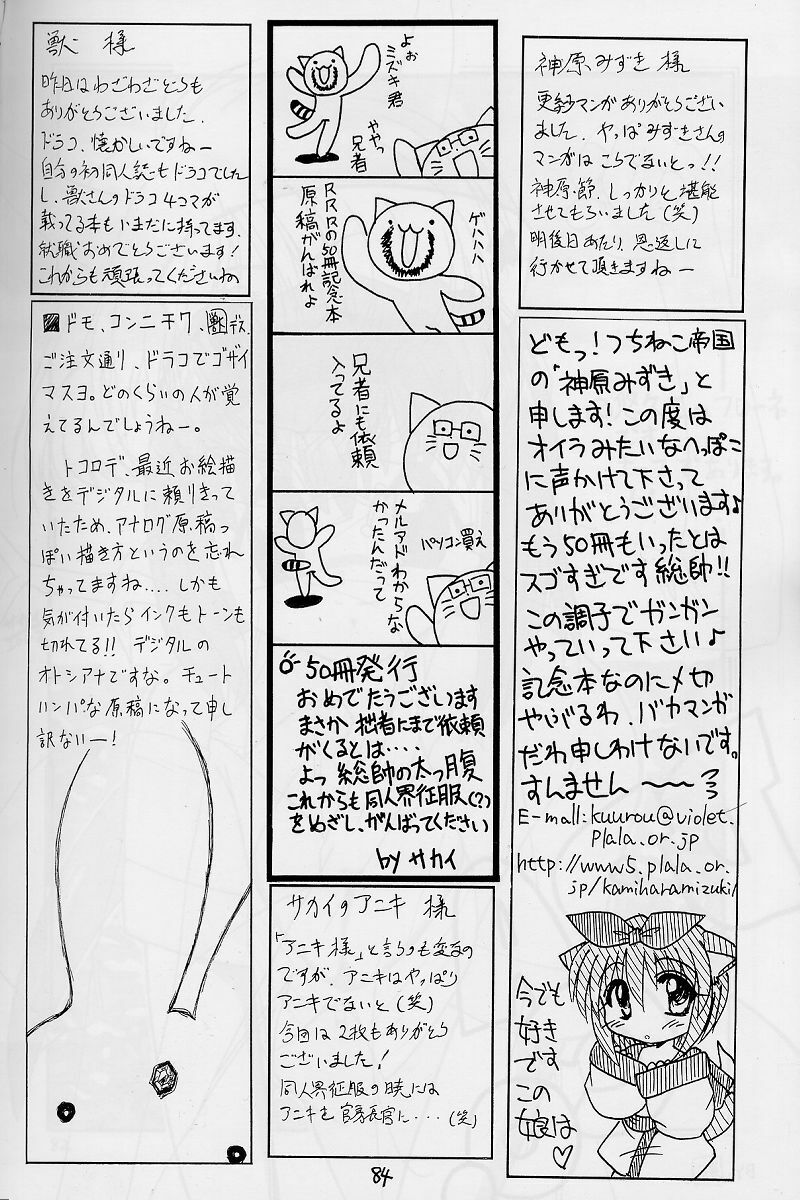 神原みずき 様
更紗マンガありがとうござい
ました。やっぱみずきさんの
マンガはこうでないとっ!!
神原節、しっかりと堪能
させてもらいました(笑)
明後日あたり、恩返しに
行かせて頂きますねー
どもっ!つちねこ帝国
の「神原みずき」と
申します!この度は
オイラみたいなへっぽこ
に声かけて下さって
ありがとうございます♪
もう50冊もいったとは
スゴすぎです総帥!!
この調子でガンガン
やっていって下さい♪
記念本なのに〆切
やぶるわ、バカマンガ
だわ申しわけないです。
すんません〜〜
E-mall:kuurou@violet.
plala.or.jp
http://www5.plala.or.
jp/kamiharamizuki/
今でも
好きです
この
娘は♡
よぉ
ミズキ君
ややっ
兄者
ゲハハハ
RRRの50冊記念本
原稿がんばれよ
兄者にも依頼
入ってるよ
メルアドわからな
かったんだって
パソコン買え
50冊発行
おめでたうございます
まさか拙者にまで依頼
がくるとは・・・・
よっ総帥の太っ腹
これからも同人界征服(?)
をめざし、がんばってください
by サカイ
サカイのアニキ 様
「アニキ様」と言うのも変なの
ですが、アニキはやっぱり
アニキでないと(笑)
今回は2枚もありがとう
ございました!
同人界征服の暁には
アニキを官房長官に・・・(笑)
獣 様
昨日はわざわざどうも
ありがとうございました。
ドラコ、懐かしいですねー
自分の初同人誌もドラコでした
し、獣さんのドラコ4コマが
載ってる本もいまだに持ってます。
就職おめでとうございます!
これからも頑張ってくださいね
ドモ、コンニチワ、獣デス。
ご注文通り、ドラコでゴザイ
マスヨ。どのくらいの人が覚
えてるんでしょうねー。
トコロデ、最近お絵描
きをデジタルに頼りきって
いたため、アナログ原稿っ
ぽい描き方というのを忘れ
ちゃってますね.... しかも
気が付いたらインクもトーンも
切れてる!! デジタルの
オトシアナですな。チュート
ハンパな原稿になって申し
訳ないー!
84